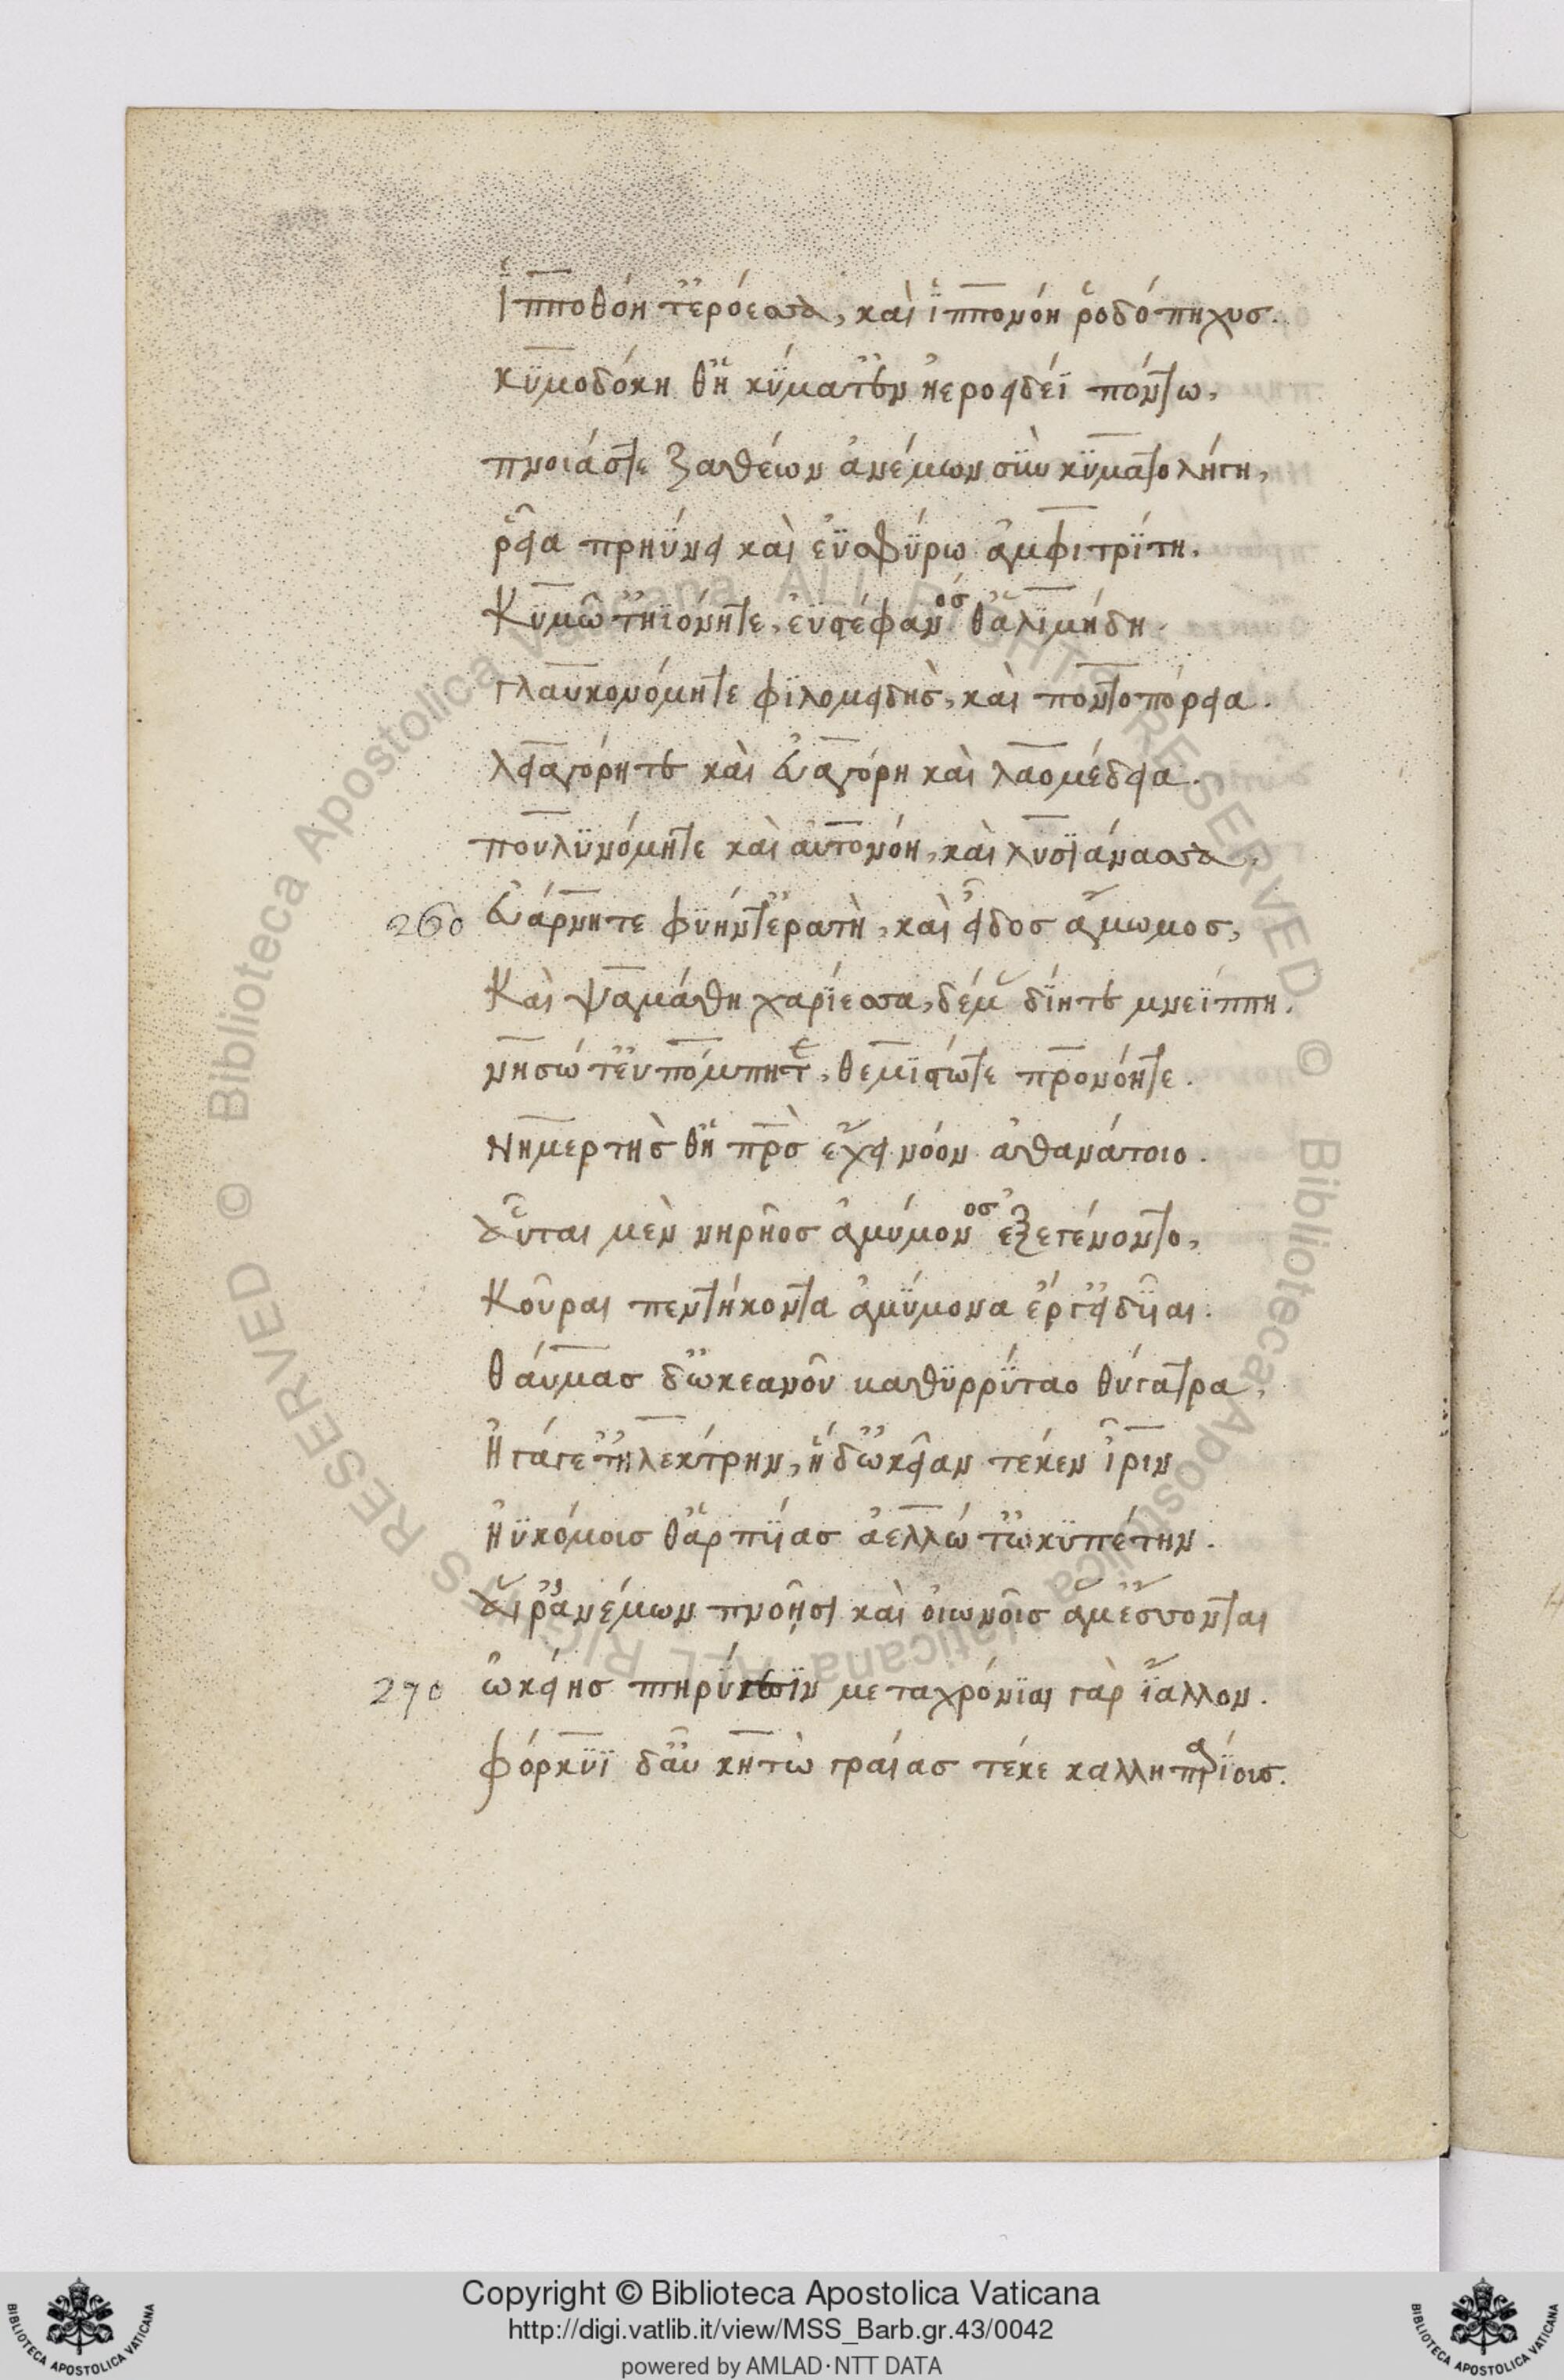 ἱπποθόη τ' ἐρόεσσα, καὶ ἱππονόη ῥοδόπηχυσ.
κυμοδόκη θ' ἣ κύματ' ἐν ἠεροειδέϊ πόντω,
πνοιάστε ζαθέων ἀνέμων σὺν κυματολήγη,
ῥεῖα πρηύνει καὶ ἐυσφύρω ἀμφιτρίτη.
Κυμώ τ' ἠϊόνητε, ἐυστέφανοσ θ' ἁλιμήδη.
γλαυκονόμητε φιλομειδὴσ, καὶ ποντοπόρεια.
λειαγόρητε καὶ εὐαγόρη καὶ λαομέδεια.
πουλυνόμητε καὶ αὐτονόη, καὶ λυσιάνασσα.
260 εὐάρνητε φυήν τ' ἐρατὴ, καὶ εἶδοσ ἄμωμοσ,
Καὶ ψαμάθη χαρίεσσα, δέμασ δίητε μνείππη.
νησώ τ' εὐπόμπητε, θεμιστώτε προνόητε.
Νημερτὴσ θ' ἣ πρσ ἔχει νόον ἀθανάτοιο.
αὗται μὲν νηρῆοσ ἀμύμονοσ ἐξεγένοντο,
Κοῦραι πεντήκοντα ἀμύμονα ἔργ' εἰδυῖαι.
θαύμασ δ' ὠκεανοῦ καθυρρύταο θύγατρα,
ἠγάγετ' ἠλεκτρην, ἣ δ' ὠκεῖαν τέκεν ἶριν
ἠυκόμοισ θ' ἁρπυίασ ἀελλώ τ' ὠκυπέτην.
αἵ ῥ' ἀνέμων πνοῆσι καὶ οἰωνοῖσ ἅμ' ἕσπονται
270 ὠκείησ πτηρύγεσσιν μεταχρόνιαι γὰρ ἴαλλον.
φόρκυϊ δ' αὖ κητὼ γραίασ τέκε καλληπαρίουσ.
Copyright © Biblioteca Apostolica Vaticana
http://digi.vatlib.it/view/MSS_Barb.gr.43/0042
powered by AMLAD·NTT DATA